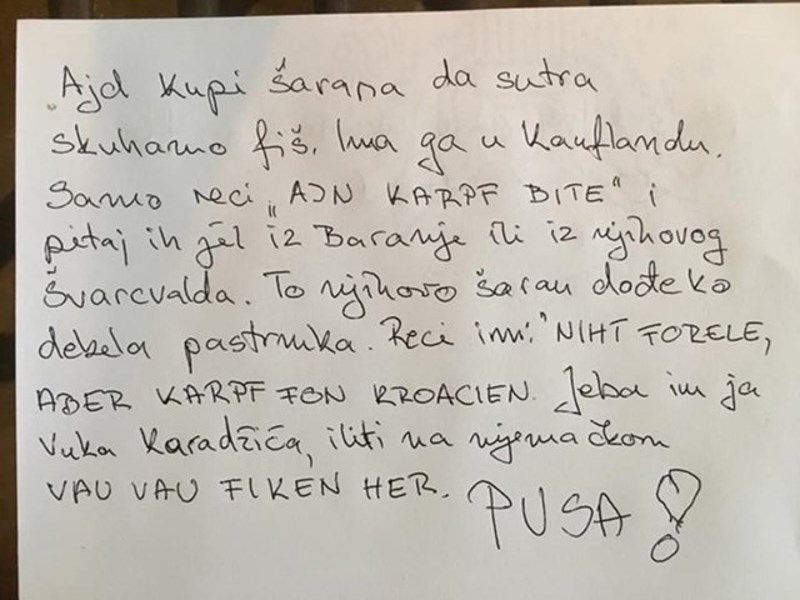 Ajd kupi šarana da sutra
skuhamo fiš. Ima ga u Kauflandu.
Samo reci „AJN KARPF BITE" i
pitaj ih jel iz Baranje ili iz njihovog
švarcvalda. To njihovo šaran dođe ko
debela pastrmka. Reci im: "NIHT FORELE,
ABER KARPF FON KROACIEN. Jeba im ja
Vuka Karadžića, iliti na njemačkom
VAU VAU FIKEN HER. PUSA!